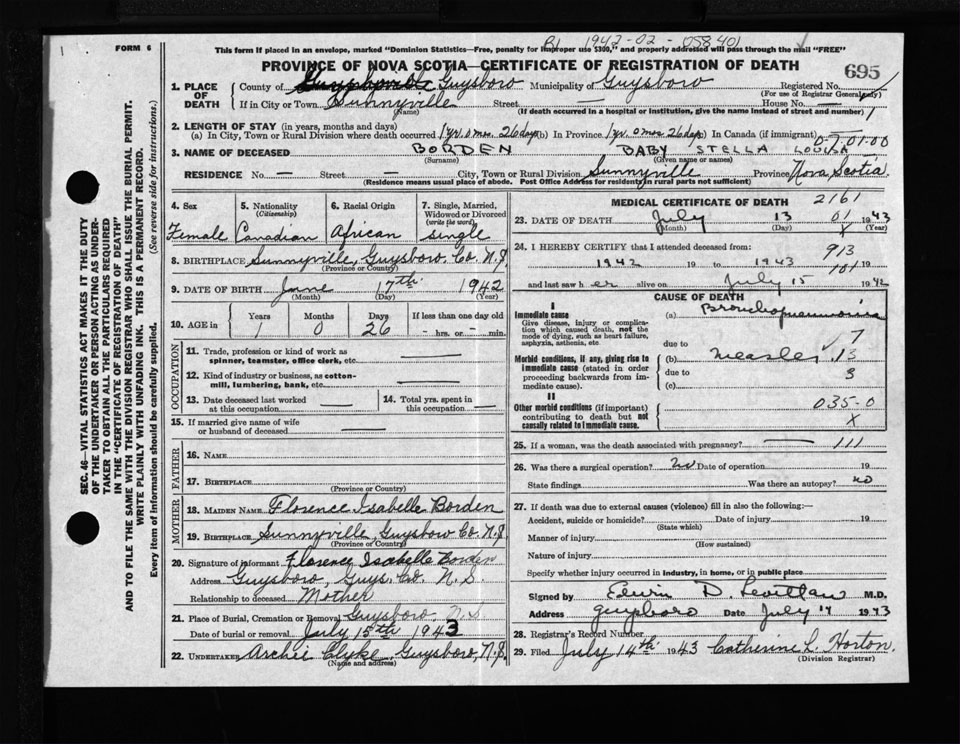 1942-02-058401
FORM 6
This form if placed in an envelope, marked "Dominion Statistics—Free, penalty for improper use $300," and properly addressed will pass through the mail "FREE"
PROVINCE OF NOVA SCOTIA—CERTIFICATE OF REGISTRATION OF DEATH
695
1. PLACE OF DEATH
County of Guysboro Municipality of Guysboro Registered No.
(For use of Registrar General only)
If in City or Town Sunnyville Street — House No. —
(Name) (If death occurred in a hospital or institution, give the name instead of street and number)
2. LENGTH OF STAY (in years, months and days)
(a) In City, Town or Rural Division where death occurred 1 yr. 0 mos. 26 days (b) In Province 1 yr. 0 mos. 26 days (c) In Canada (if immigrant)
3. NAME OF DECEASED BORDEN BABY STELLA LOUISA
(Surname) (Given name or names)
RESIDENCE No. — Street — City, Town or Rural Division Sunnyville Province Nova Scotia
(Residence means usual place of abode. Post Office Address for resident in rural parts not sufficient)
4. Sex Female
5. Nationality (Citizenship) Canadian
6. Racial Origin African
7. Single, Married, Widowed or Divorced (write the word) single
8. BIRTHPLACE Sunnyville, Guysboro Co. N.S.
(Province or Country)
9. DATE OF BIRTH June 17th 1942
(Month) (Day) (Year)
10. AGE in Years Months Days If less than one day old
1 0 26 — hrs. or — min.
OCCUPATION
11. Trade, profession or kind of work as spinner, teamster, office clerk, etc. —
12. Kind of industry or business, as cotton-mill, lumbering, bank, etc. —
13. Date deceased last worked at this occupation —
14. Total yrs. spent in this occupation —
15. If married give name of wife or husband of deceased —
FATHER
16. Name
17. Birthplace
(Province or Country)
MOTHER
18. Maiden Name Florence Isabelle Borden
19. Birthplace Sunnyville, Guysboro Co. N.S.
(Province or Country)
20. Signature of informant Florence Isabelle Borden
Address Guysboro, Guys. Co. N.S.
Relationship to deceased Mother
21. Place of Burial, Cremation or Removal Guysboro N.S.
Date of burial or removal July 15th 1943
22. Undertaker Archie Clyke, Guysboro, N.S.
(Name and address)
MEDICAL CERTIFICATE OF DEATH 2161
23. DATE OF DEATH July 13 1943
(Month) (Day) (Year)
24. I HEREBY CERTIFY that I attended deceased from: 913
1942 19 to 1943 19
101
and last saw her alive on July 15 1942
CAUSE OF DEATH
I
Immediate cause
Give disease, injury or complication which caused death, not the mode of dying, such as heart failure, asphyxia, asthenia, etc.
(a) Bronchopneumonia
due to 7
Morbid conditions, if any, giving rise to immediate cause (stated in order proceeding backwards from immediate cause).
(b) Measles 13
due to 3
(c)
II
Other morbid conditions (if important) contributing to death but not causally related to immediate cause.
035-0
X
25. If a woman, was the death associated with pregnancy? — 111
26. Was there a surgical operation? no Date of operation 19
State findings Was there an autopsy? no
27. If death was due to external causes (violence) fill in also the following:—
Accident, suicide or homicide? Date of injury 19
(State which)
Manner of injury
(How sustained)
Nature of injury
Specify whether injury occurred in industry, in home, or in public place
Signed by Edwin D. M.D.
Address Guysboro Date July 14 1943
28. Registrar's Record Number
29. Filed July 14th 1943 Catherine L. Horton.
(Division Registrar)
SEC. 46—VITAL STATISTICS ACT MAKES IT THE DUTY
OF THE UNDERTAKER OR PERSON ACTING AS UNDER-
TAKER TO OBTAIN ALL THE PARTICULARS REQUIRED
IN THE "CERTIFICATE OF REGISTRATION OF DEATH"
AND TO FILE THE SAME WITH THE DIVISION REGISTRAR WHO SHALL ISSUE THE BURIAL PERMIT.
WRITE PLAINLY WITH UNFADING INK. THIS IS A PERMANENT RECORD.
Every item of information should be carefully supplied. (See reverse side for instructions.)